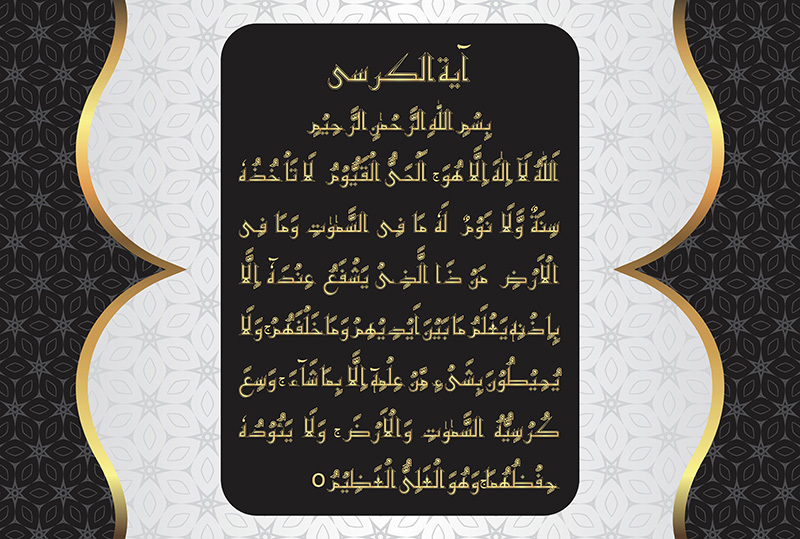 آية الكرسى
بِسْمِ اللّٰهِ الرَّحْمٰنِ الرَّحِيْمِ
اَللّٰهُ لَآ اِلٰهَ اِلَّا هُوَ ۚ اَلْحَىُّ الْقَيُّوْمُ لَا تَاْخُذُهٗ
سِنَةٌ وَّلَا نَوْمٌ لَهٗ مَا فِى السَّمٰوٰتِ وَمَا فِى
الْاَرْضِ مَنْ ذَا الَّذِىْ يَشْفَعُ عِنْدَهٗٓ اِلَّا
بِاِذْنِهٖ يَعْلَمُ مَا بَيْنَ اَيْدِيْهِمْ وَمَا خَلْفَهُمْ ۚ وَلَا
يُحِيْطُوْنَ بِشَىْءٍ مِّنْ عِلْمِهٖٓ اِلَّا بِمَا شَآءَ ۚ وَسِعَ
كُرْسِيُّهُ السَّمٰوٰتِ وَالْاَرْضَ ۚ وَلَا يَـُٔوْدُهٗ
حِفْظُهُمَا ۚ وَهُوَ الْعَلِىُّ الْعَظِيْمُ ○